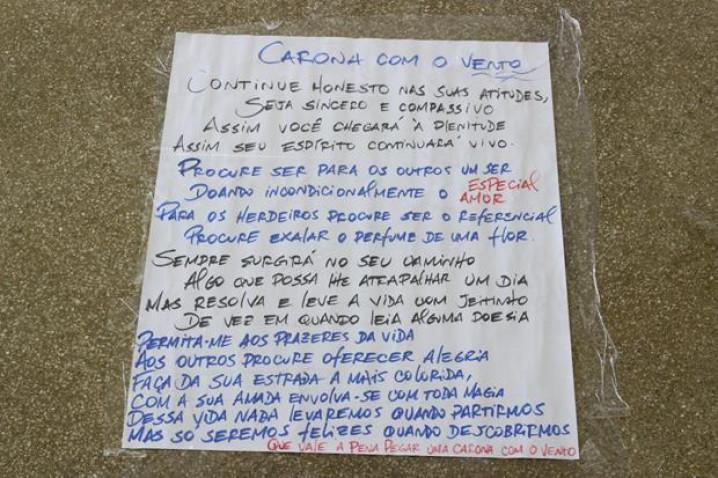 CARONA COM O VENTO
CONTINUE HONESTO NAS SUAS ATITUDES,
SEJA SINCERO E COMPASSIVO
ASSIM VOCÊ CHEGARÁ À PLENITUDE
ASSIM SEU ESPÍRITO CONTINUARÁ VIVO.
PROCURE SER PARA OS OUTROS UM SER ESPECIAL
DOANDO INCONDICIONALMENTE O AMOR
PARA OS HERDEIROS PROCURE SER O REFERENCIAL
PROCURE EXALAR O PERFUME DE UMA FLOR.
SEMPRE SURGIRÁ NO SEU CAMINHO
ALGO QUE POSSA LHE ATRAPALHAR UM DIA
MAS RESOLVA E LEVE A VIDA COM JEITINHO
DE VEZ EM QUANDO LEIA ALGUMA POESIA
PERMITA-ME AOS PRAZERES DA VIDA
AOS OUTROS PROCURE OFERECER ALEGRIA
FAÇA DA SUA ESTRADA A MAIS COLORIDA,
COM A SUA AMADA ENVOLVA-SE COM TODA MAGIA
DESSA VIDA NADA LEVAREMOS QUANDO PARTIRMOS
MAS SÓ SEREMOS FELIZES QUANDO DESCOBRIRMOS
QUE VALE A PENA PEGAR UMA CARONA COM O VENTO